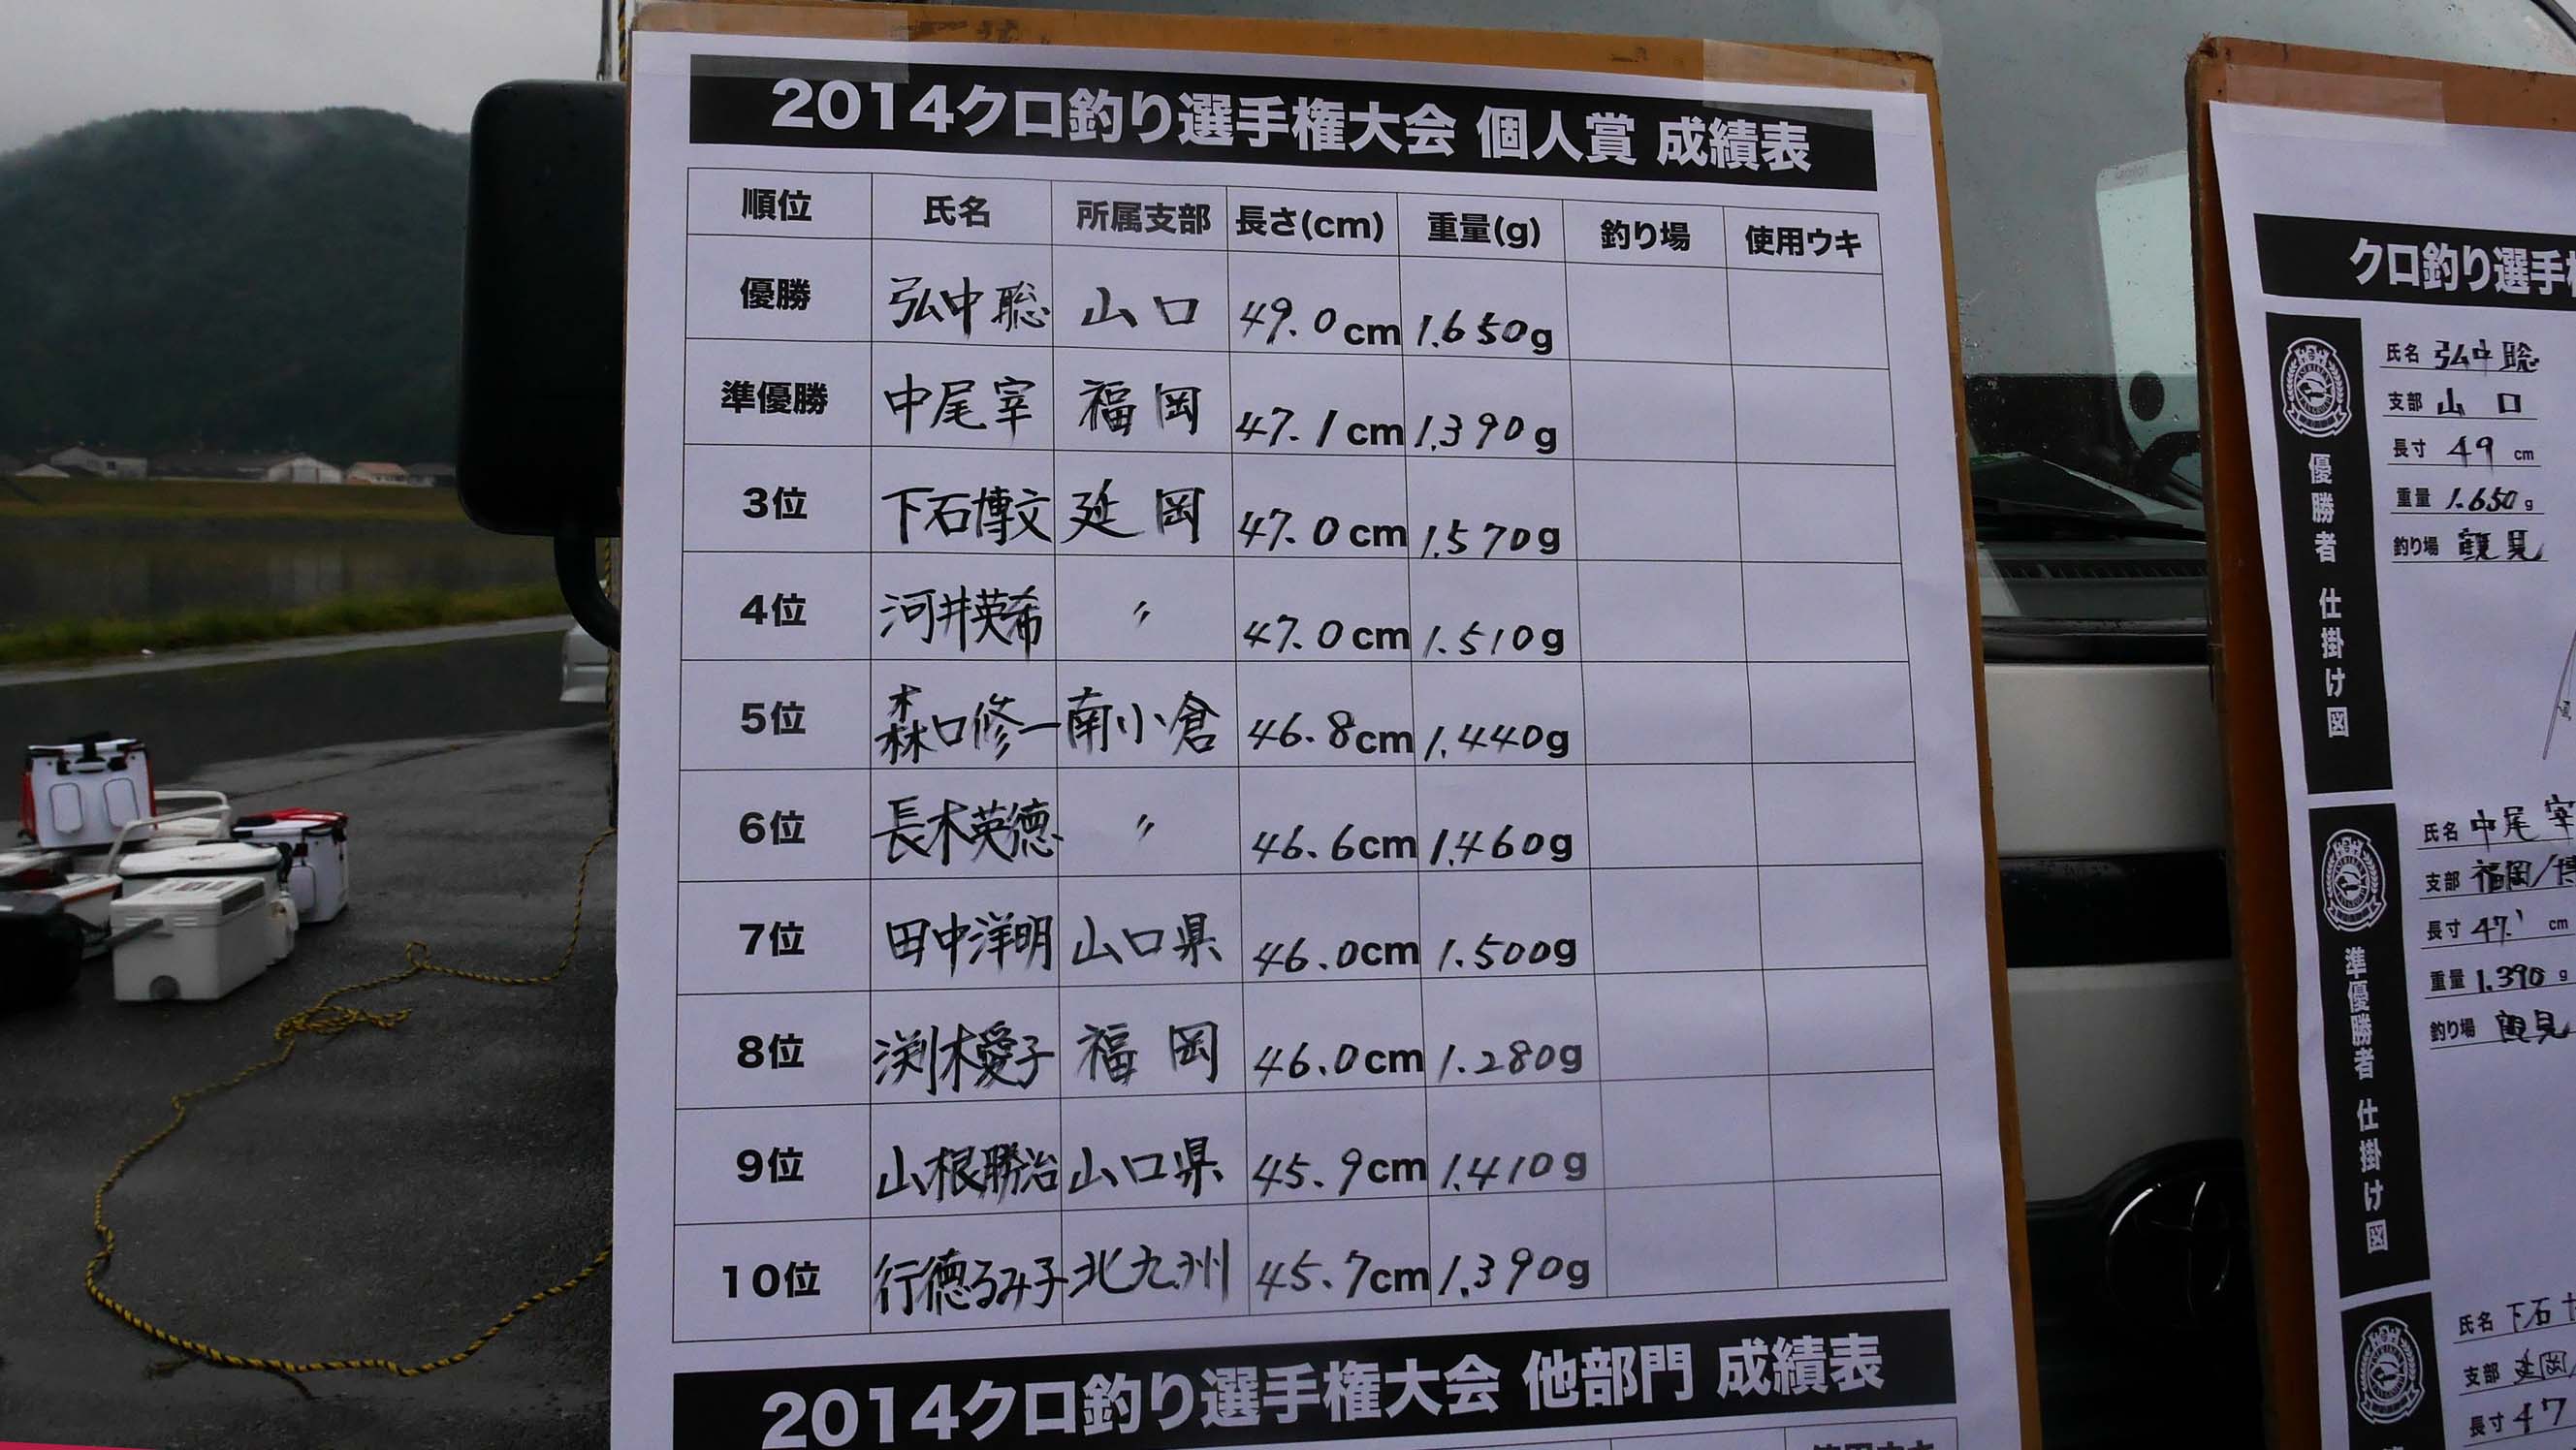 2014クロ釣り選手権大会 個人賞 成績表
順位 氏名 所属支部 長さ(cm) 重量(g) 釣り場 使用ウキ
優勝 弘中聡 山口 49.0cm 1.650g
準優勝 中尾宰 福岡 47.1cm 1.390g
3位 下石博文 延岡 47.0cm 1.570g
4位 河井英希 〃 47.0cm 1.510g
5位 森口修一 南小倉 46.8cm 1.440g
6位 長木英徳 〃 46.6cm 1.460g
7位 田中洋明 山口県 46.0cm 1.500g
8位 渕木愛子 福岡 46.0cm 1.280g
9位 山根勝治 山口県 45.9cm 1.410g
10位 行徳るみ子 北九州 45.7cm 1.390g
2014クロ釣り選手権大会 他部門 成績表
クロ釣り選手
優勝者 仕掛け図
氏名 弘中聡
支部 山口
長寸 49 cm
重量 1.650 g
釣り場 鶴見
準優勝者 仕掛け図
氏名 中尾宰
支部 福岡/
長寸 47.1 cm
重量 1.390 g
釣り場
氏名 下石
支部 延岡
長寸 47